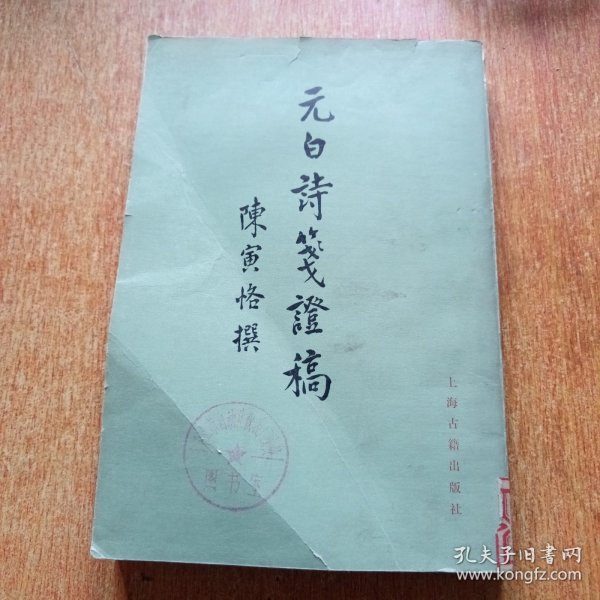 元白詩箋證稿
陳寅恪撰
上海古籍出版社
图书室
孔夫子旧书网
www.kongfz.com